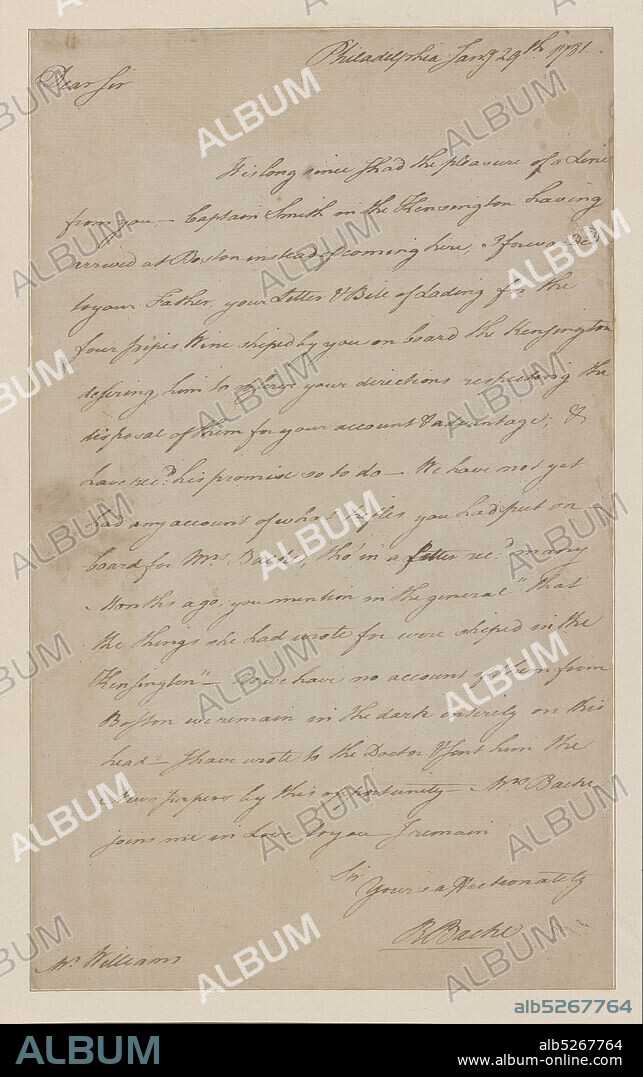 Philadelphia Jany 29th 1781.
Dear Sir
It is long since I had the pleasure of a Line
from you,— Captain Smith in the Kensington having
arrived at Boston instead of coming here, I forwarded
to your Father, your Letter & Bill of Lading for the
four pipes Wine shiped by you on board the Kensington
desiring him to observe your directions respecting the
disposal of them for your account & advantage; &
have rec.d his promise so to do— We have not yet
had any account of what Articles you had put on
board for Mrs Bache, tho' in a Letter rec.d many
Months ago, you mention in the general "that
the things she had wrote for were shiped in the
Kensington"— As we have no account of them from
Boston we remain in the dark entirely on this
head— I have wrote to the Doctor & sent him the
News papers by this opportunity— Mrs Bache
joins me in Love to you— I remain
Sir
Yours affectionately
R Bache
Mr Williams
ALBUM
alb5267764
ALBUM
alb5267764
www.album-online.com